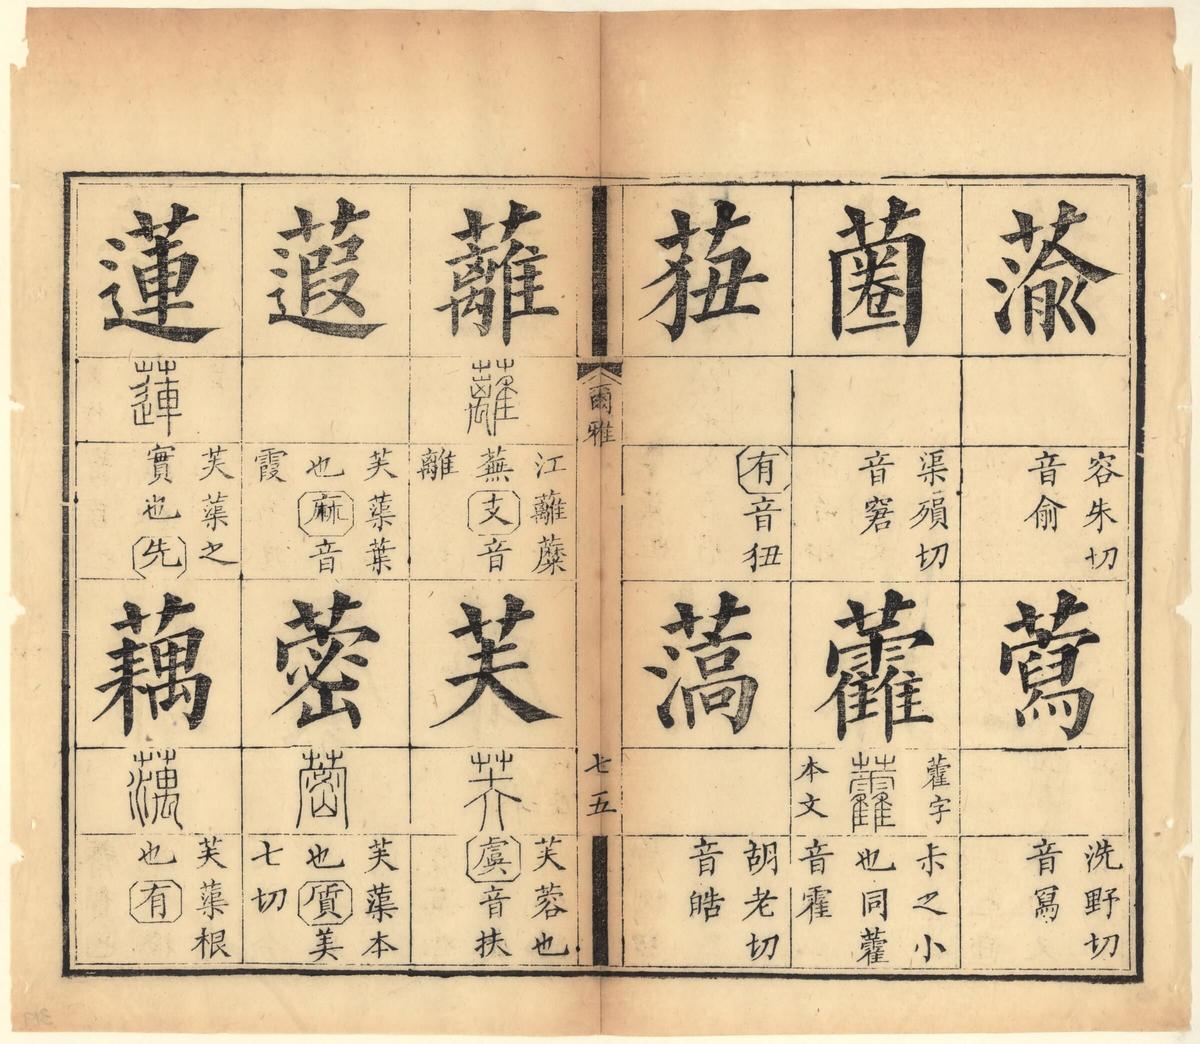 蕍
容朱切
音俞
藛
洗野切
音冩
蔨
渠殞切
音窘
藿字
本文
尗之小
也同藿
音霍
莥
有音狃
薃
胡老切
音皓
爾雅
七五
蘺
蘺
江蘺蘪
蕪支音
離
芙
芙
芙蓉也
虞音扶
蕸
芙蕖葉
也麻音
霞
蔤
蔤
芙蕖本
也質美
七切
蓮
蓮
芙蕖之
實也先
藕
芙蕖根
也有